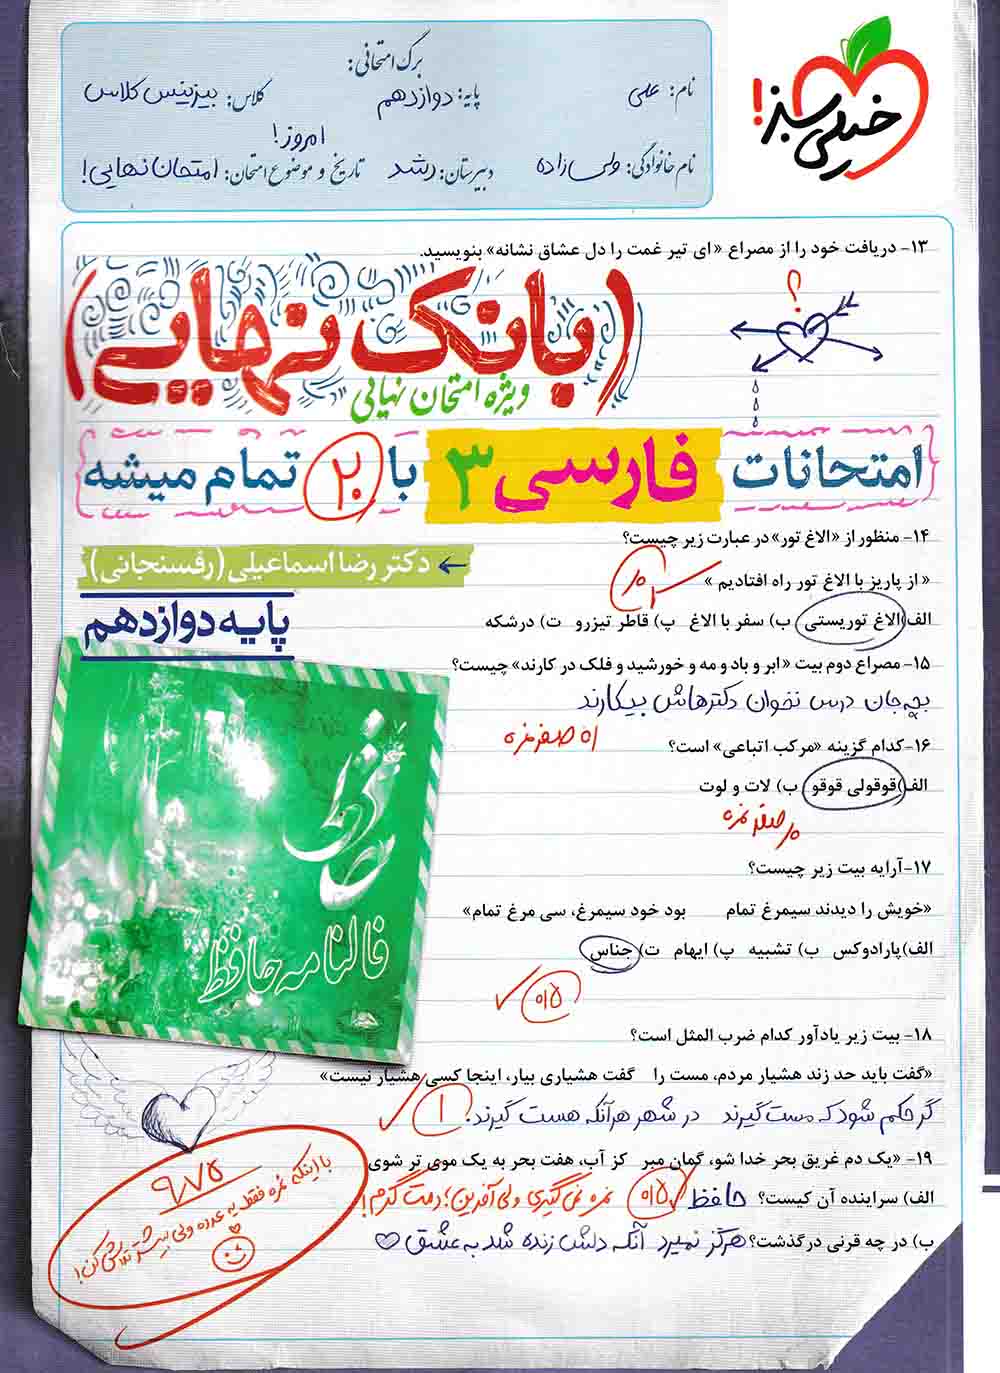 خیلی سبز!
برگ امتحانی:
نام: علی
پایه: دوازدهم
کلاس: بیزینس کلاس
امروز!
نام خانوادگی: ولی زاده
دبیرستان: رشد
تاریخ و موضوع امتحان: امتحان نهایی!
۱۳- دریافت خود را از مصراع «ای تیر غمت را دل عشاق نشانه» بنویسید.
؟
(بانک نهایی)
ویژه امتحان نهایی
امتحانات فارسی ۳ با ۲۰ تمام میشه
۱۴- منظور از «الاغ تور» در عبارت زیر چیست؟
دکتر رضا اسماعیلی (رفسنجانی)
« از پاریز با الاغ تور راه افتادیم »
پایه دوازدهم
الف) الاغ توریستی ب) سفر با الاغ پ) قاطر تیزرو ت) درشکه
۱۵- مصراع دوم بیت «ابر و باد و مه و خورشید و فلک در کارند» چیست؟
بچه جان درس نخوان دکترهاش بیکارند
صفر نمره
۱۶- کدام گزینه «مرکب اتباعی» است؟
الف) قوقولی قوقو ب) لات و لوت
صفر نمره
۱۷- آرایه بیت زیر چیست؟
«خویش را دیدند سیمرغ تمام بود خود سیمرغ، سی مرغ تمام»
الف) پارادوکس ب) تشبیه پ) ایهام ت) جناس
۰/۵
فالنامه حافظ
۱۸- بیت زیر یادآور کدام ضرب المثل است؟
«گفت باید حد زند هشیار مردم، مست را گفت هشیاری بیار، اینجا کسی هشیار نیست»
گر حکم شود که مست گیرند در شهر هر آنکه هست گیرند.
۱
۱۹- «یک دم غریق بحر خدا شو، گمان مبر کز آب، هفت بحر به یک موی تر شوی
الف) سراینده آن کیست؟ حافظ ۰/۵ نمره نمی‌گیری ولی آفرین؛ دمت گرم!
ب) در چه قرنی درگذشت؟ هرگز نمیرد آنکه دلش زنده شد به عشق
۹/۷۵
با اینکه نمره فقط یه عدده ولی بیشتر تلاش کن!